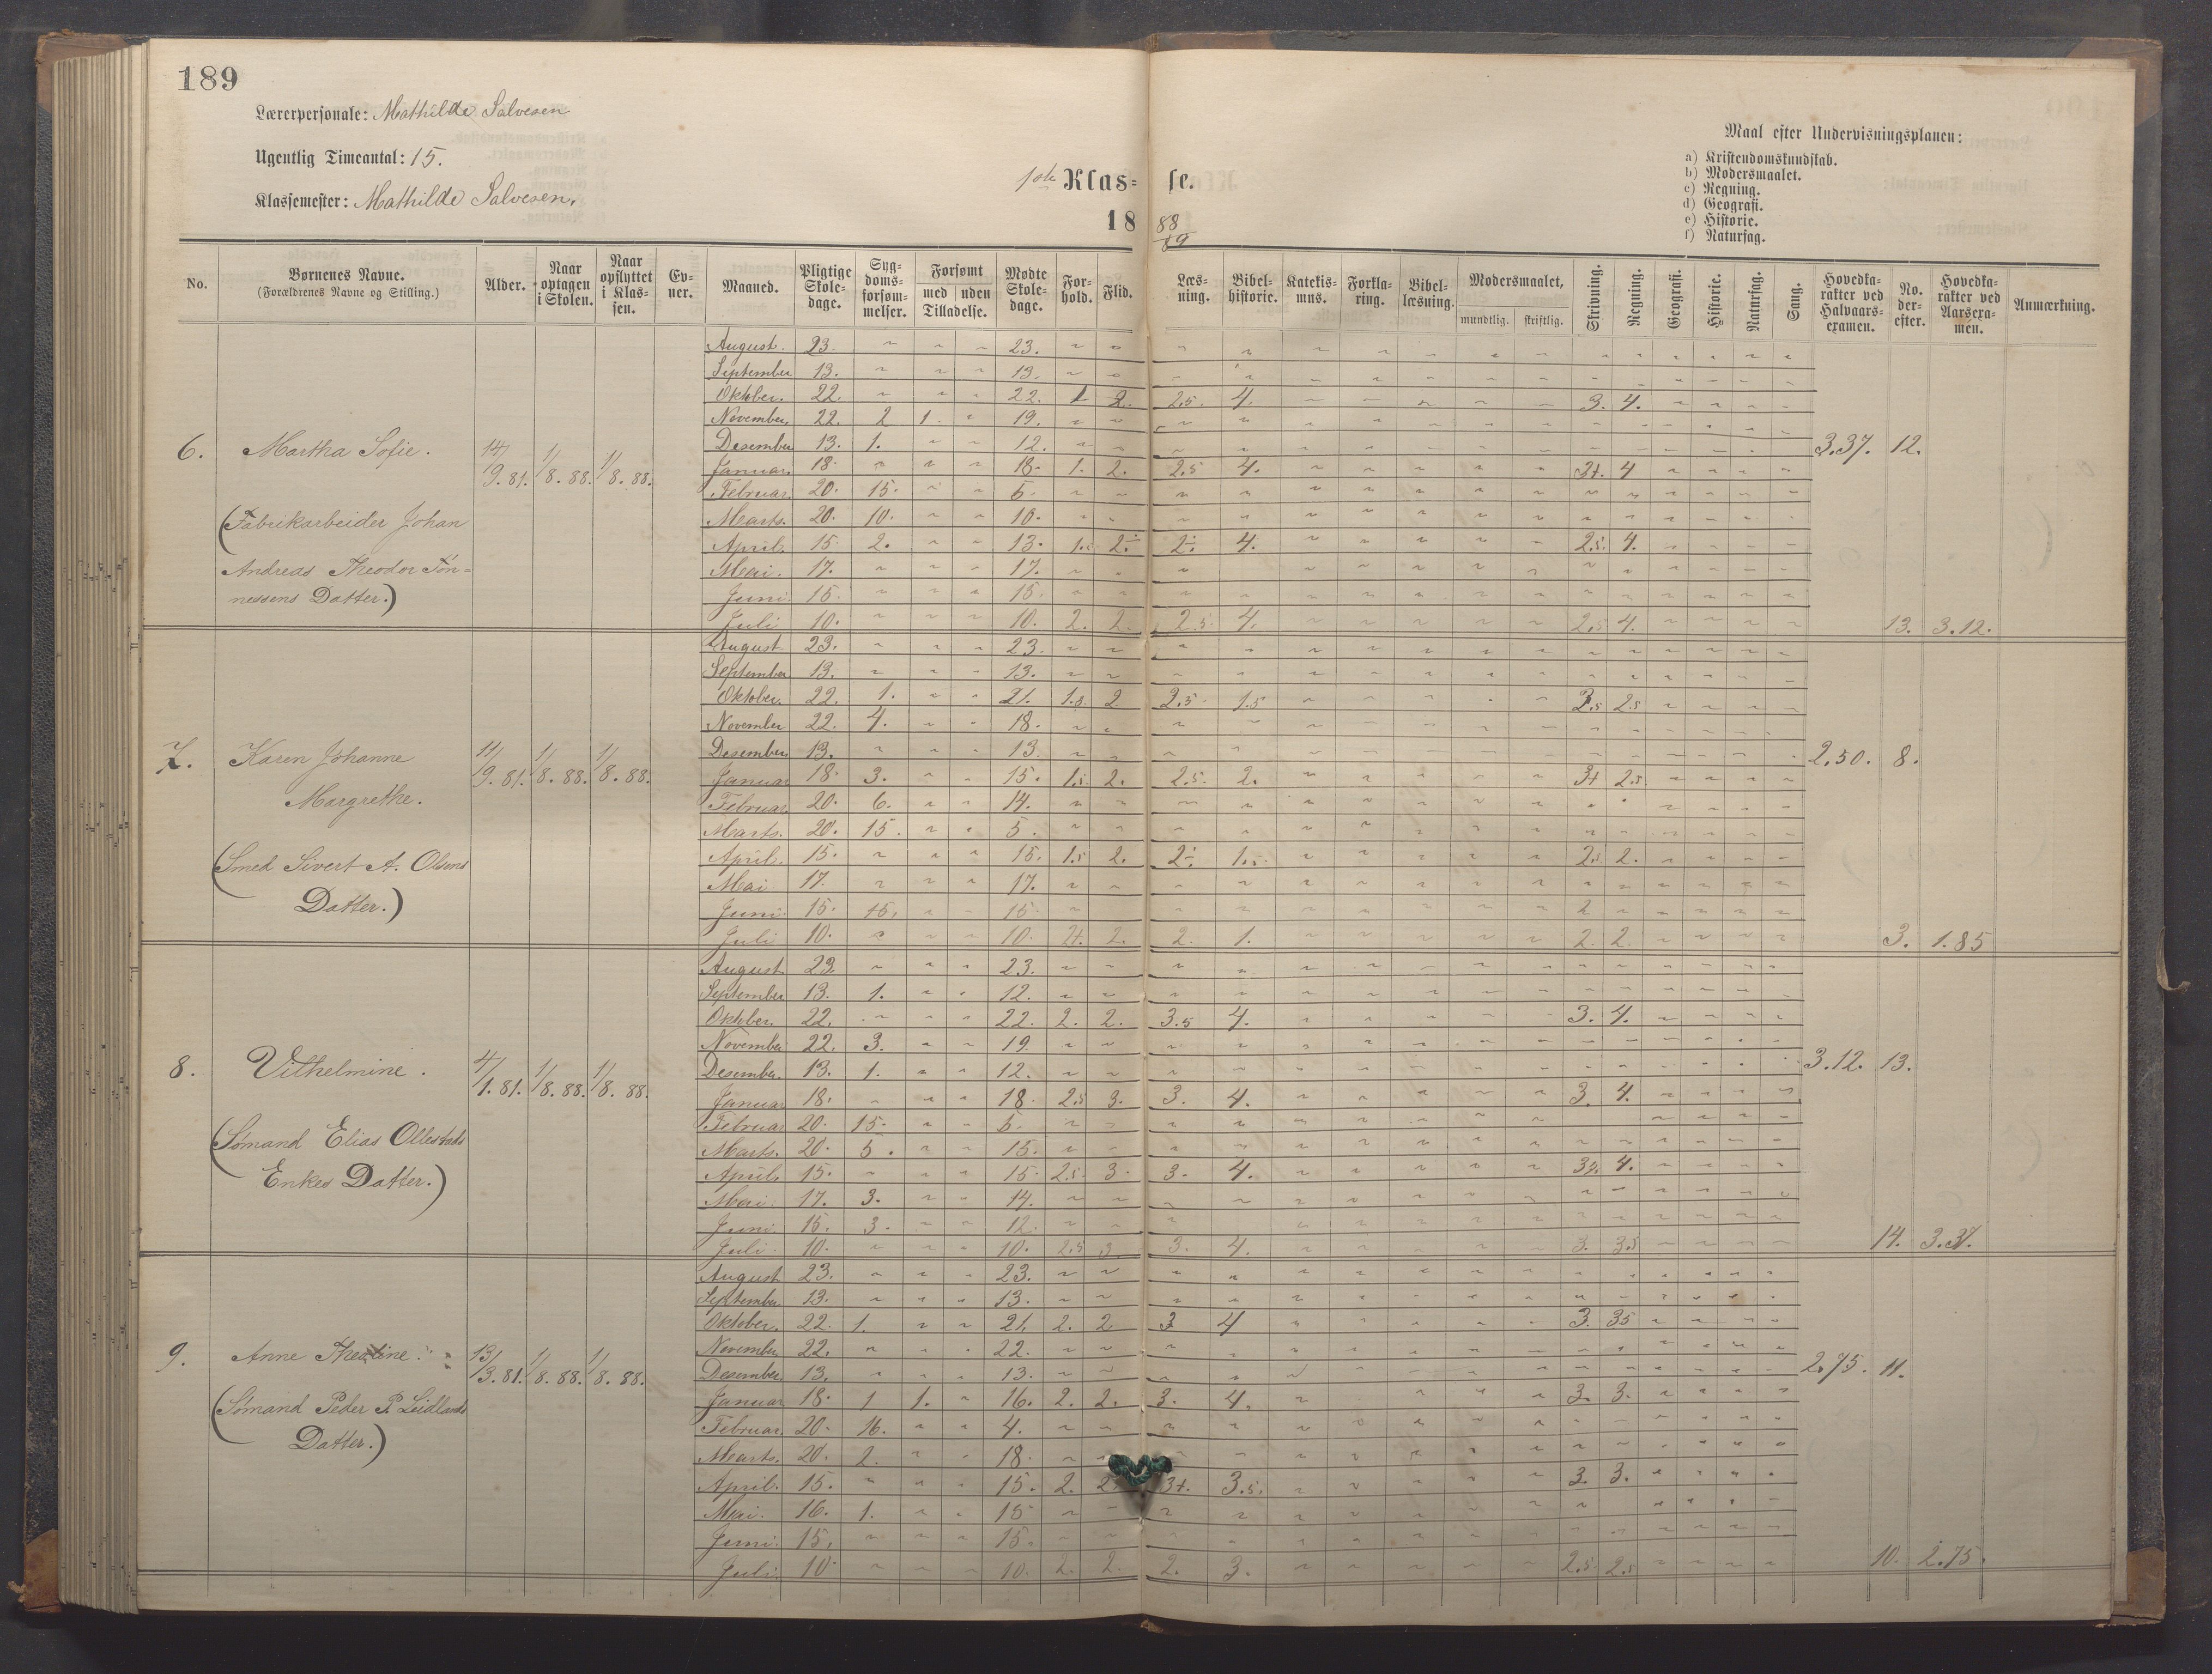 189
Lærerpersonale: Mathilde Salvesen
Ugentlig Timeantal: 15.
Klassemester: Mathilde Salvesen.
1ste Klasse.
18 88/89
Maal efter Undervisningsplanen:
a) Kristendomskundskab.
b) Modersmaalet.
c) Regning.
d) Geografi.
e) Historie.
f) Naturfag.
No. Børnenes Navne. (Forældrenes Navne og Stilling.) Alder. Naar optagen i Skolen. Naar opflyttet i Klassen. Evner. Maaned. Pligtige Skoledage. Sygdomsforsømmelser. Forsømt med uden Tilladelse. Mødte Skoledage. Forhold. Flid. Læsning. Bibelhistorie. Katekismus. Forklaring. Bibellæsning. Modersmaalet, mundtlig. skriftlig. Skrivning. Regning. Geografi. Historie. Naturfag. Sang. Hovedkarakter ved Halvaarsexamen. No. derefter. Hovedkarakter ved Aarsexamen. Anmærkning.
6. Martha Sofie. 14/9.81. 1/8.88. 1/8.88. 3.37. 12.
(Fabrikarbeider Johan
Andreas Theodor Tøn=
nessens Datter.)
August. 23. 23.
September 13. 13.
Oktober. 22. 22. 1 2. 2.5. 4. 3. 4.
November. 22. 2 1. 19.
Desember 13. 1. 12.
Januar. 18. 18. 1. 2. 2.5 4. 3+. 4
Februar. 20. 15. 5.
Marts. 20. 10. 10.
April. 15. 2. 13. 4. 2.5. 4.
Mai. 17. 17.
Juni. 15. 15.
Juli 10. 10. 2. 2. 2.5. 4. 2.5 4. 13. 3.12.
7. Karen Johanne 11/9.81. 1/8.88. 1/8.88. 2.50. 8.
Margrethe.
(Smed Sivert A. Olsens
Datter.)
August 23. 23.
September 13. 13.
Oktober. 22. 1. 21. 1.5. 2 2.5. 1.5 2.5
November 22. 4. 18.
Desember. 13. 13.
Januar 18. 3. 15. 1.5. 2. 2.5. 2. 3+ 2.5.
Februar. 20. 6. 14.
Marts. 20. 15. 5.
April. 15. 15. 1.5 2. 1.5. 2.5. 2.
Mai 17. 17.
Juni 15. 15. 15.
Juli 10. 10. 2+. 2. 2. 1. 2. 2. 3. 1.85
8. Vilhelmine. 4/1.81. 1/8.88. 1/8.88. 3.12. 13.
(Sømand Elias Ollestads
Enkes Datter.)
August. 23. 23.
September 13. 1. 12.
Oktober. 22. 22. 2. 2. 3.5 4. 3. 4.
November 22. 3. 19
Desember. 13. 1. 12.
Januar 18. 18. 2.5 3. 3. 4. 3. 4.
Februar 20. 15. 5.
Marts. 20. 5. 15.
April. 15. 15. 2.5. 3. 3. 4. 4.
Mai. 17. 3. 14.
Juni. 15. 3. 12.
Juli. 10. 10. 2.5 3. 3. 4. 3. 3.5 14. 3.37.
9. Anne 13/3.81. 1/8.88. 1/8.88. 2.75. 11.
(Sømand Peder P. Leidlands
Datter.)
August 23. 23.
September. 13. 13.
Oktober. 22. 1. 21. 2. 2 3 4 3. 3.5
November 22. 22.
Desember 13. 13.
Januar 18. 1 1. 16. 2. 2. 3. 4. 3. 3.
Februar. 20. 16. 4.
Marts. 20. 2. 18.
April. 15. 15. 2. 3+. 3.5. 3. 3.
Mai. 16. 1. 15
Juni. 15. 15.
Juli. 10 10. 2. 2. 2. 3. 2.5 2.5 10. 2.75.